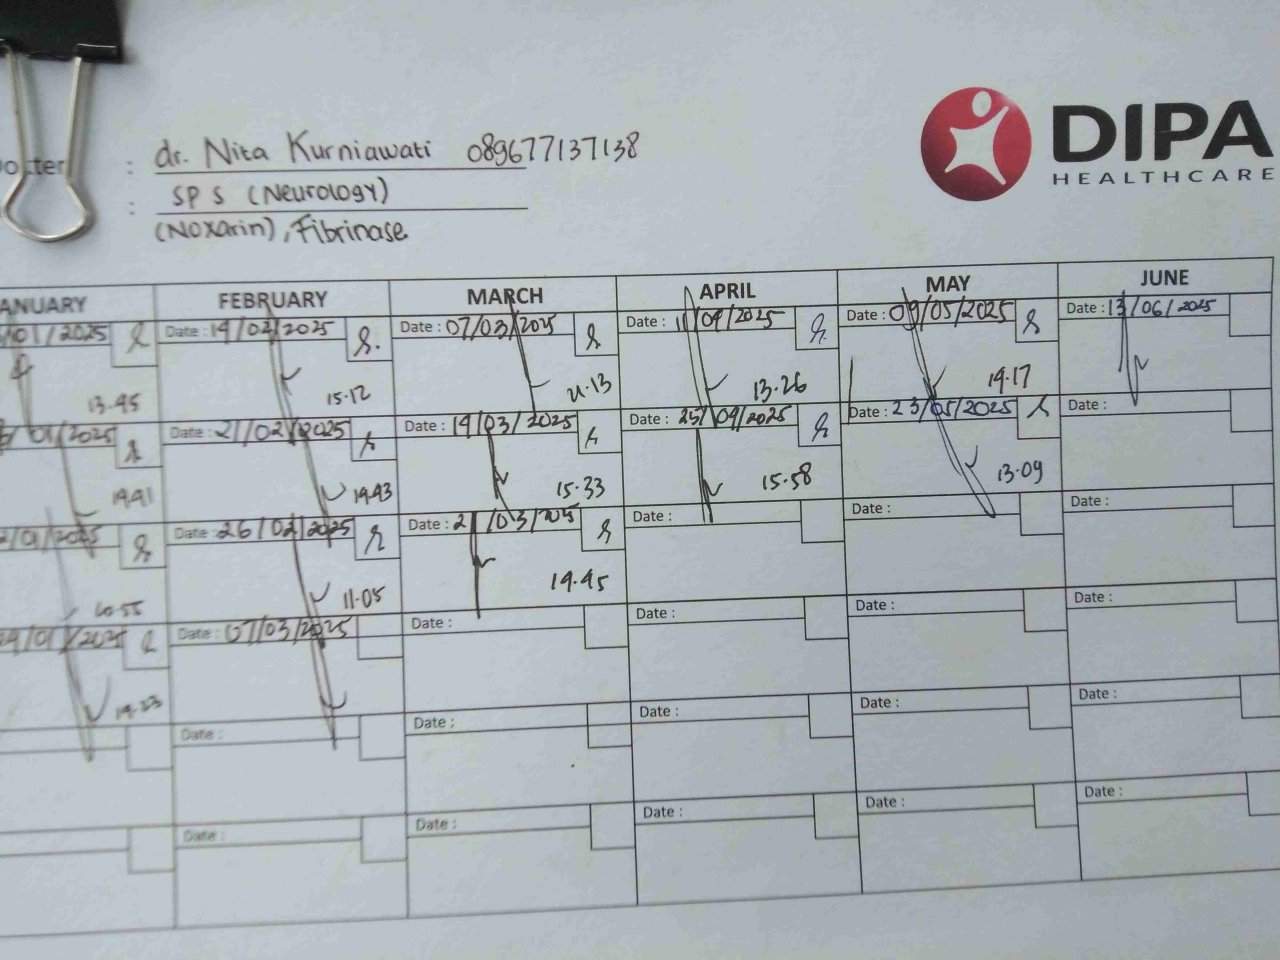 dr. Nita Kurniawati 089677137138
DIPA
HEALTHCARE
:
SP S (Neurology)
:
(Noxarin), Fibrinase
ANUARY FEBRUARY MARCH APRIL MAY JUNE
/01/2025 Date : 14/02/2025 Date : 07/03/2025 Date : 11/04/2025 Date : 09/05/2025 Date : 13/06/2025
13.45 15.12 21.13 13.26 14.17
/01/2025 Date : 21/02/2025 Date : 14/03/2025 Date : 25/04/2025 Date : 23/05/2025 Date :
14.41 14.43 15.33 15.58 13.09
/01/2025 Date : 26/02/2025 Date : 21/03/2025 Date : Date : Date :
11.05 14.45
/01/2025 Date : 07/03/2025 Date : Date : Date : Date :
14.23
Date : Date : Date : Date : Date :
Date : Date : Date : Date : Date :